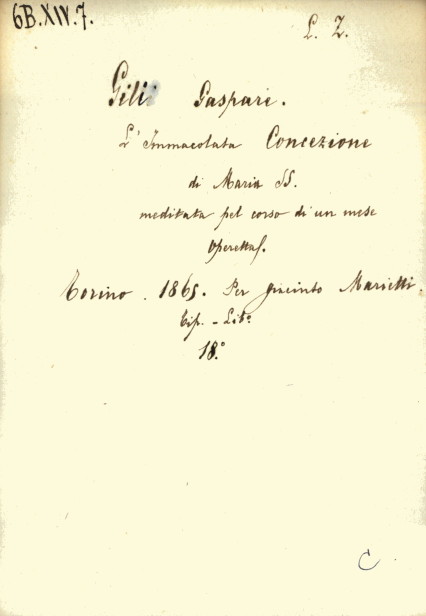 6B.XIV.7.
L. Z.
Gili Gaspare.
L'Immacolata Concezione
di Maria SS.
meditata pel corso di un mese
Operetta.
Torino. 1865. Per Giacinto Marietti.
Tip. - Lib.
18.°
C